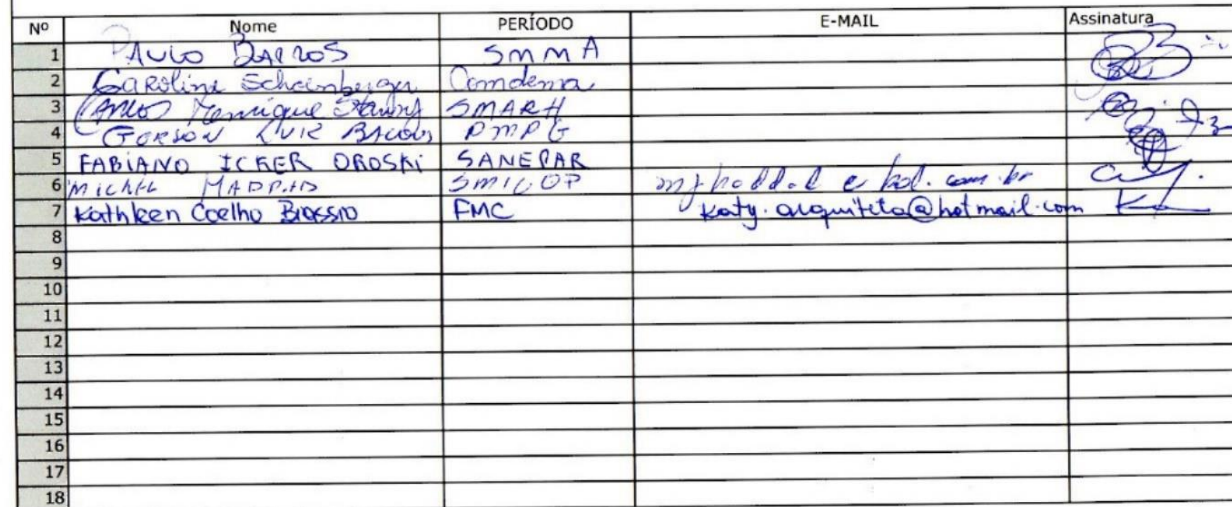 Nº Nome PERÍODO E-MAIL Assinatura
1 PAULO BARROS SMMA
2 Caroline Schoenberger Comdema
3 Carlos Henrique SMARH
4 GERSON LUIZ PMPG
5 FABIANO ICKER OROSKI SANEPAR
6 MICHEL HADDAD SMICOP
7 Kathleen Coelho FMC Katy.arquiteta@hotmail.com
8
9
10
11
12
13
14
15
16
17
18